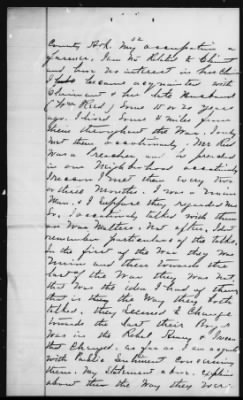 2
County Ark. My occupation a
farmer. I am No Relative to Claimt
and have no interest in her Claim
I first became acquainted with
Claimant & her late Husband
(Wm Reed) some 15 or 20 years
ago. I lived some 4 miles from
them throughout the War. I only
met them occasionally, Mr Reed
was a Preacher and he preached
in our Neighborhood occasionally
I reckon I met them every two
or three Months. I was a Union
Man & I suppose they regarded me
so. I occasionally talked with them
on War Matters. Not often. I dont
remember particulars of the talks.
In the first of the War they was
Union and then towards the
last of the War they was not,
that was the idea I had of them
that is they the Way they both
talked. they seemed to Change
towards the last their Boys
was in the Rebel Army & I reckon
that Changed. as far as I am acquainted
with Public Sentiment Concerning
them. My Statement above
about them the Way they were